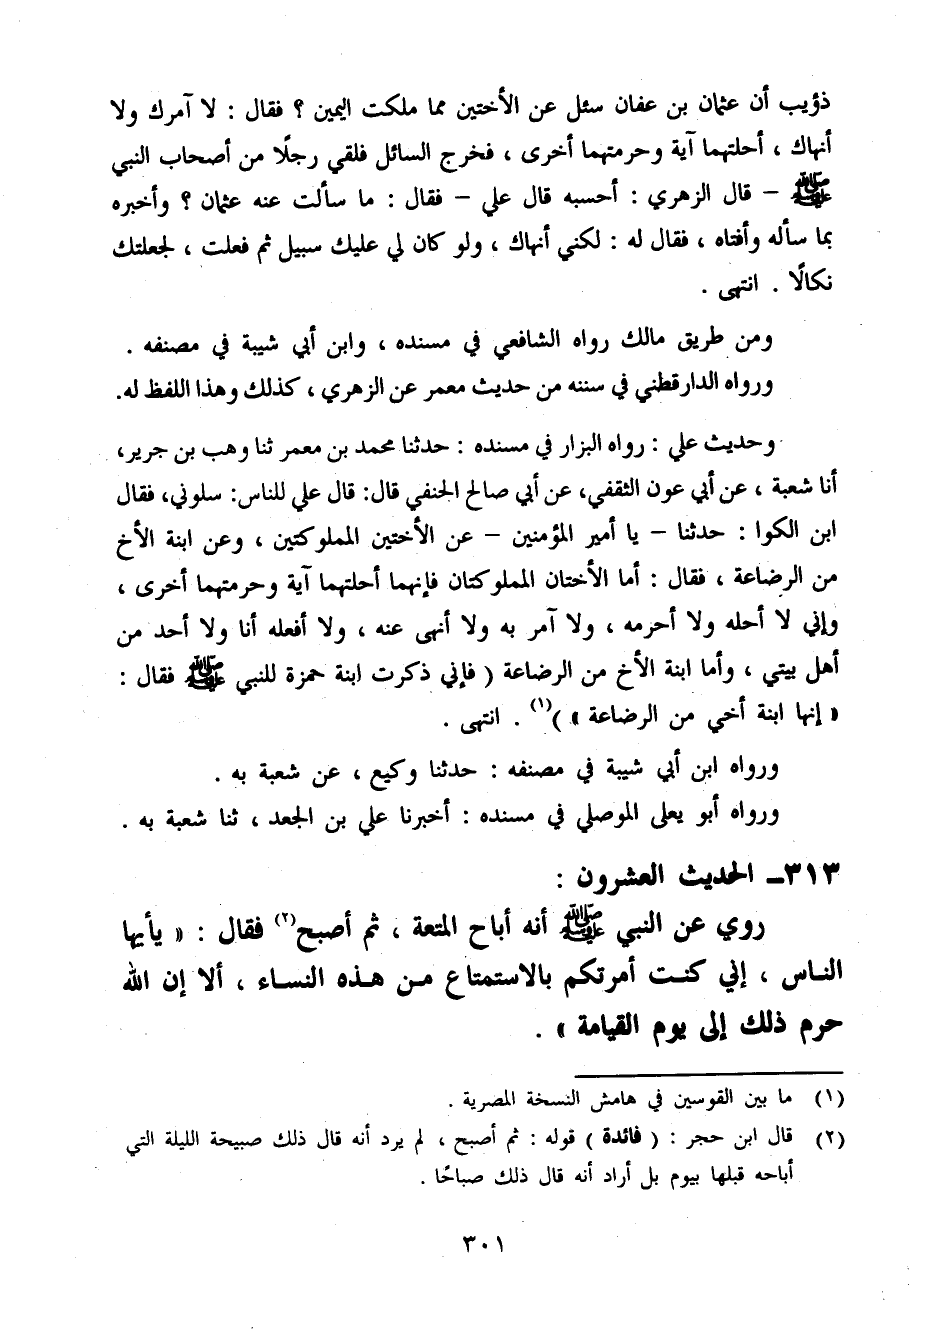 ذؤيب أن عثمان بن عفان سئل عن الأختين مما ملكت اليمين ؟ فقال : لا آمرك ولا
أنهاك ، أحلتهما آية وحرمتهما أخرى ، فخرج السائل فلقي رجلًا من أصحاب النبي
ﷺ – قال الزهري : أحسبه قال علي – فقال : ما سألت عنه عثمان ؟ وأخبره
بما سأله وأفتاه ، فقال له : لكني أنهاك ، ولو كان لي عليك سبيل ثم فعلت ، لجعلتك
نكالًا . انتهى .
ومن طريق مالك رواه الشافعي في مسنده ، وابن أبي شيبة في مصنفه .
ورواه الدارقطني في سننه من حديث معمر عن الزهري ، كذلك وهذا اللفظ له.
وحديث علي : رواه البزار في مسنده : حدثنا محمد بن معمر ثنا وهب بن جرير،
أنا شعبة ، عن أبي عون الثقفي، عن أبي صالح الحنفي قال: قال علي للناس: سلوني، فقال
ابن الكوا : حدثنا – يا أمير المؤمنين – عن الأختين المملوكتين ، وعن ابنة الأخ
من الرضاعة ، فقال : أما الأختان المملوكتان فإنهما أحلتهما آية وحرمتهما أخرى ،
وإني لا أحله ولا أحرمه ، ولا آمر به ولا أنهى عنه ، ولا أفعله أنا ولا أحد من
أهل بيتي ، وأما ابنة الأخ من الرضاعة ( فإني ذكرت ابنة حمزة للنبي ﷺ فقال :
« إنها ابنة أخي من الرضاعة » )(١) . انتهى .
ورواه ابن أبي شيبة في مصنفه : حدثنا وكيع ، عن شعبة به .
ورواه أبو يعلى الموصلي في مسنده : أخبرنا علي بن الجعد ، ثنا شعبة به .
٣١٣ـ الحديث العشرون :
روي عن النبي ﷺ أنه أباح المتعة ، ثم أصبح(٢) فقال : « يأيها
الناس ، إني كنت أمرتكم بالاستمتاع من هذه النساء ، ألا إن الله
حرم ذلك إلى يوم القيامة » .
(١) ما بين القوسين في هامش النسخة المصرية .
(٢) قال ابن حجر : ( فائدة ) قوله : ثم أصبح ، لم يرد أنه قال ذلك صبيحة الليلة التي
أباحه قبلها بيوم بل أراد أنه قال ذلك صباحًا .
٣٠١